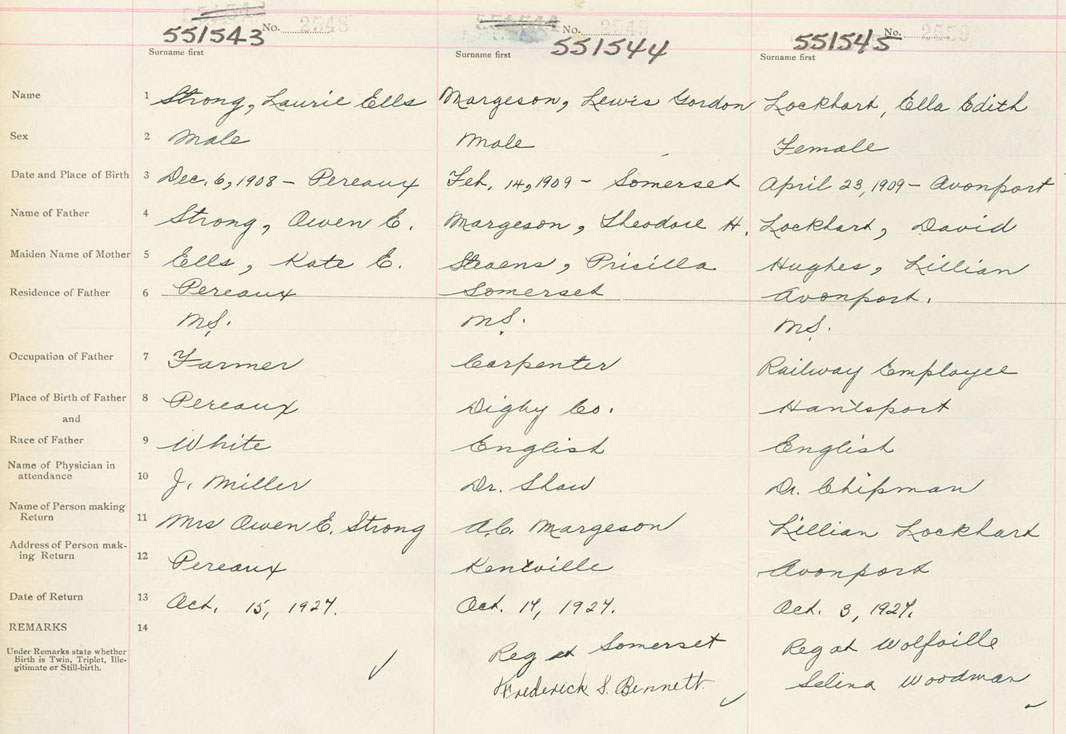 No. 2548
No. 2549
No. 2550
551543
551544
551545
Surname first
Surname first
Surname first
Name 1 Strong, Laurie Ells Margeson, Lewis Gordon Lockhart, Ella Edith
Sex 2 Male Male Female
Date and Place of Birth 3 Dec. 6, 1908 - Pereaux Feb. 14, 1909 - Somerset April 23, 1909 - Avonport
Name of Father 4 Strong, Owen E. Margeson, Theodore H. Lockhart, David
Maiden Name of Mother 5 Ells, Kate E. Priscilla Hughes, Lillian
Residence of Father 6 Pereaux Somerset Avonport.
MS. MS. MS.
Occupation of Father 7 Farmer Carpenter Railway Employee
Place of Birth of Father 8 Pereaux Digby Co. Hantsport
and
Race of Father 9 White English English
Name of Physician in
attendance 10 J. Miller Dr. Shaw Dr. Chipman
Name of Person making
Return 11 Mrs Owen E. Strong A.C. Margeson Lillian Lockhart
Address of Person mak-
ing Return 12 Pereaux Kentville Avonport
Date of Return 13 Oct. 15, 1927. Oct. 14, 1927. Oct. 3, 1927.
REMARKS 14
Under Remarks state whether
Birth is Twin, Triplet, Ille-
gitimate or Still-birth.
Reg at Somerset
Frederick S. Bennett.
Reg at Wolfville
Selina Woodman